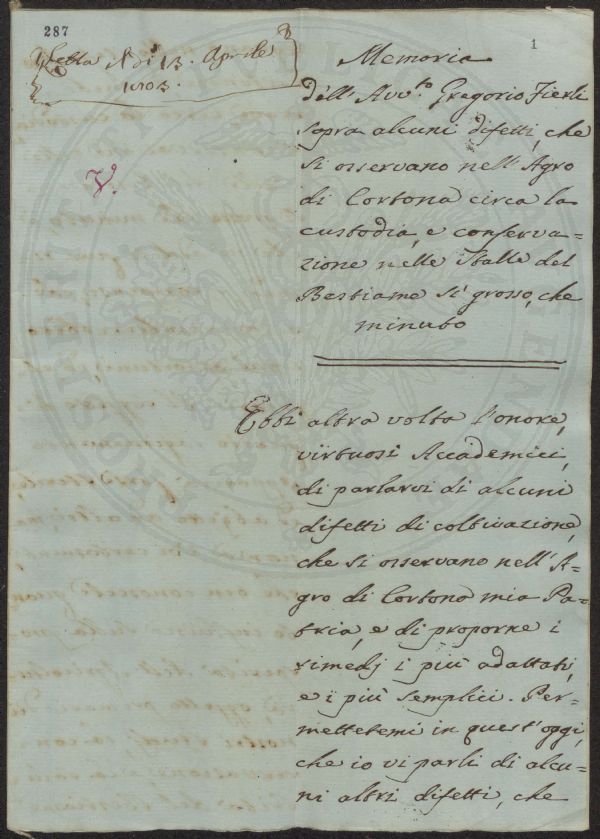 287
1
Letta A dì 13. Aprile
1803.
V.
Memoria
dell' Avv.to Gregorio Fierli
sopra alcuni difetti, che
si osservano nell' Agro
di Cortona circa la
custodia, e conserva=
zione nelle Stalle del
Bestiame sì grosso, che
minuto
Ebbi altra volta l'onore,
virtuosi Accademici,
di parlarvi di alcuni
difetti di coltivazione,
che si osservano nell' A=
gro di Cortona mia Pa=
tria, e di proporne i
rimedj i più adattati,
e i più semplici. Per=
mettetemi in quest'oggi,
che io vi parli di alcu=
ni altri difetti, che